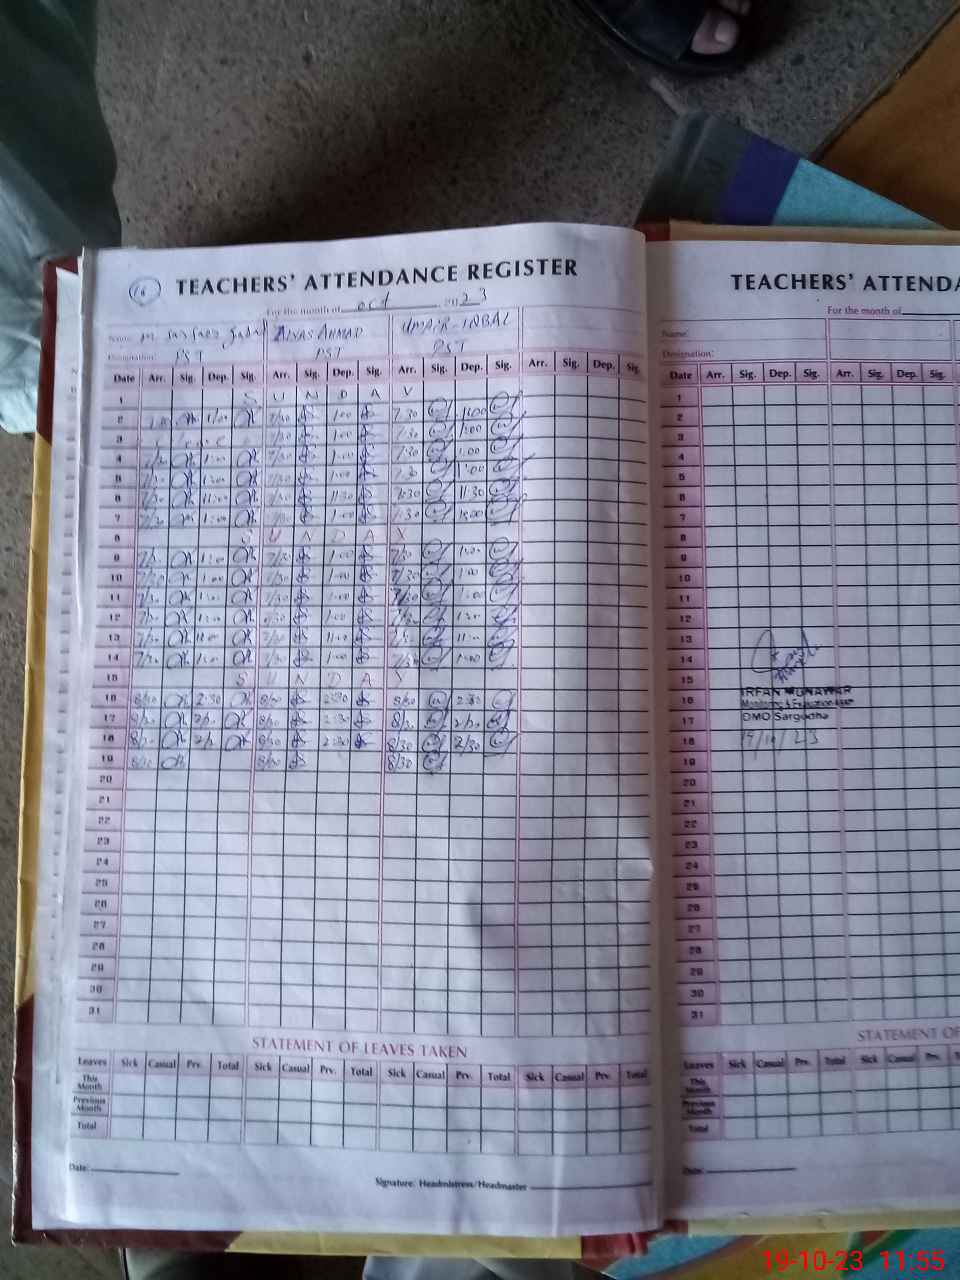 16
TEACHERS' ATTENDANCE REGISTER
For the month of oct 2023
Name: M Sarfraz AIYAS AHMAD UMAIR-IQBAL
Designation: PST PST PST
Date Arr. Sig. Dep. Sig. Arr. Sig. Dep. Sig. Arr. Sig. Dep. Sig. Arr. Sig. Dep. Sig.
1 S U N D A Y
2 1:00 7/30 1:00 7:30 1:00
3 Leave 7/30 1:00 7/30 1:00
4 7/30 1:00 7/30 1:00 7/30 1:00
5 7/30 1:00 7/30 1:00 7:30 1:00
6 7/30 11:00 7/30 11:30 7:30 11:30
7 7/30 1:00 7/30 1:00 7:30 1:00
8 S U N D A Y
9 7/30 1:00 7/30 1:00 7/30 1:00
10 7/30 1:00 7/30 1:00 7/30 1:00
11 7/30 1:00 7/30 1:00 7/30 1:00
12 7/30 1:00 7/30 1:00 7/30 1:30
13 7/30 11:00 7/30 11:00 7/30 11:00
14 7/30 1:00 7/30 1:00 7/30 1:00
15 S U N D A Y
16 8/30 2:30 8/30 2:30 8/30 2:30
17 8/30 2/30 8/30 2:30 8/30 2/30
18 8/30 2/30 8/30 2:30 8/30 2/30
19 8/30 8/30 8/30
20
21
22
23
24
25
26
27
28
29
30
31
STATEMENT OF LEAVES TAKEN
Leaves Sick Casual Prv. Total Sick Casual Prv. Total Sick Casual Prv. Total Sick Casual Prv. Total
This Month
Previous Month
Total
Date:
Signature: Headmistress/Headmaster
TEACHERS' ATTENDA
For the month of
Name:
Designation:
Date Arr. Sig. Dep. Sig. Arr. Sig. Dep. Sig.
1
2
3
4
5
6
7
8
9
10
11
12
13
14
15
16
17
18
19
20
21
22
23
24
25
26
27
28
29
30
31
IRFAN MUNAWAR
Monitoring & Evaluation
DMO Sargodha
19/10/23
STATEMENT OF
Leaves Sick Casual Prv. Total Sick Casual Prv.
This Month
Previous Month
Total
Date:
19-10-23 11:55